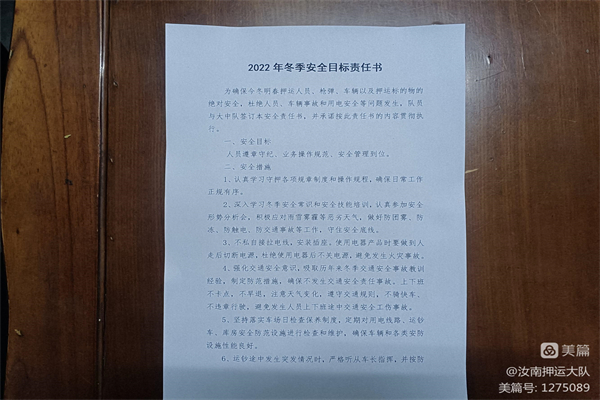 2022 年冬季安全目标责任书
为确保今冬明春押运人员、枪弹、车辆以及押运标的物的
绝对安全，杜绝人员、车辆事故和用电安全等问题发生，队员
与大中队签订本安全责任书，并承诺按此责任书的内容贯彻执
行。
一、安全目标
人员遵章守纪、业务操作规范、安全管理到位。
二、安全措施
1、认真学习守押各项规章制度和操作规程，确保日常工作
正规有序。
2、深入学习冬季安全常识和安全技能培训，认真参加安全
形势分析会，积极应对雨雪雾霾等恶劣天气，做好防团雾、防
冻、防触电、防交通事故等工作，守住安全底线。
3、不私自接拉电线，安装插座。使用电器产品时要做到人
走后切断电源，杜绝使用电器后不关电源，避免发生火灾事故。
4、强化交通安全意识，吸取历年来冬季交通安全事故教训
经验，制定防范措施，确保不发生交通安全责任事故。上下班
不卡点，不早退，注意天气变化，遵守交通规则，不骑快车、
不违章行驶，避免发生人员上下班途中交通安全工伤事故。
5、坚持落实车场日检查保养制度，定期对用电线路、运钞
车、库房安全防范设施进行检查和维护，确保车辆和各类安防
设施性能良好。
6、运钞途中发生突发情况时，严格听从车长指挥，并按防
美篇
@汝南押运大队
美篇号: 1275089